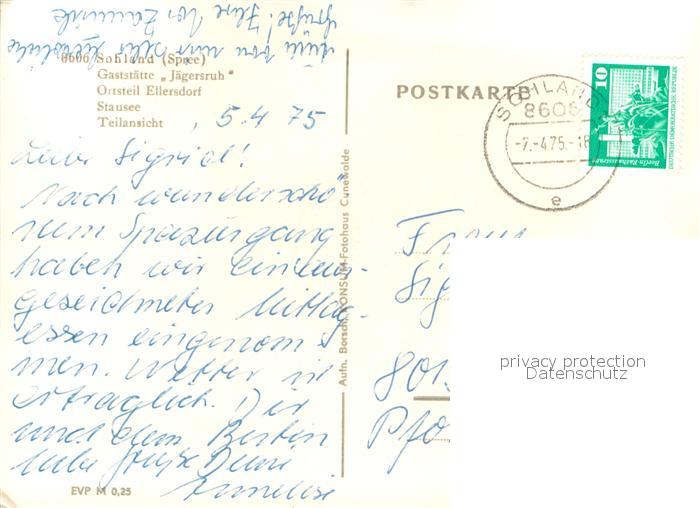 8606 Sohland (Spree)
Gaststätte „Jägersruh"
Ortsteil Ellersdorf
Stausee
Teilansicht
5.4 75
Liebe Sigrid!
Nach wunderschö
nem Spaziergang
haben wir ein aus-
gezeichnetes Mittag-
essen eingenom
men. Wetter ist
erträglich. Dir
und dem
liebe Grüße Deine
Annelise
Grüße! Ihre
von uns
EVP M 0,25
Aufn. Borsch, KONSUM-Fotohaus Cunewalde
POSTKARTE
SOHLAND
8606
-7.-4.75.-18
e
10
Berlin Rathausstraße
DEUTSCHE DEMOKRATISCHE REPUBLIK
Frau
Sig
801
Pfo
privacy protection
Datenschutz